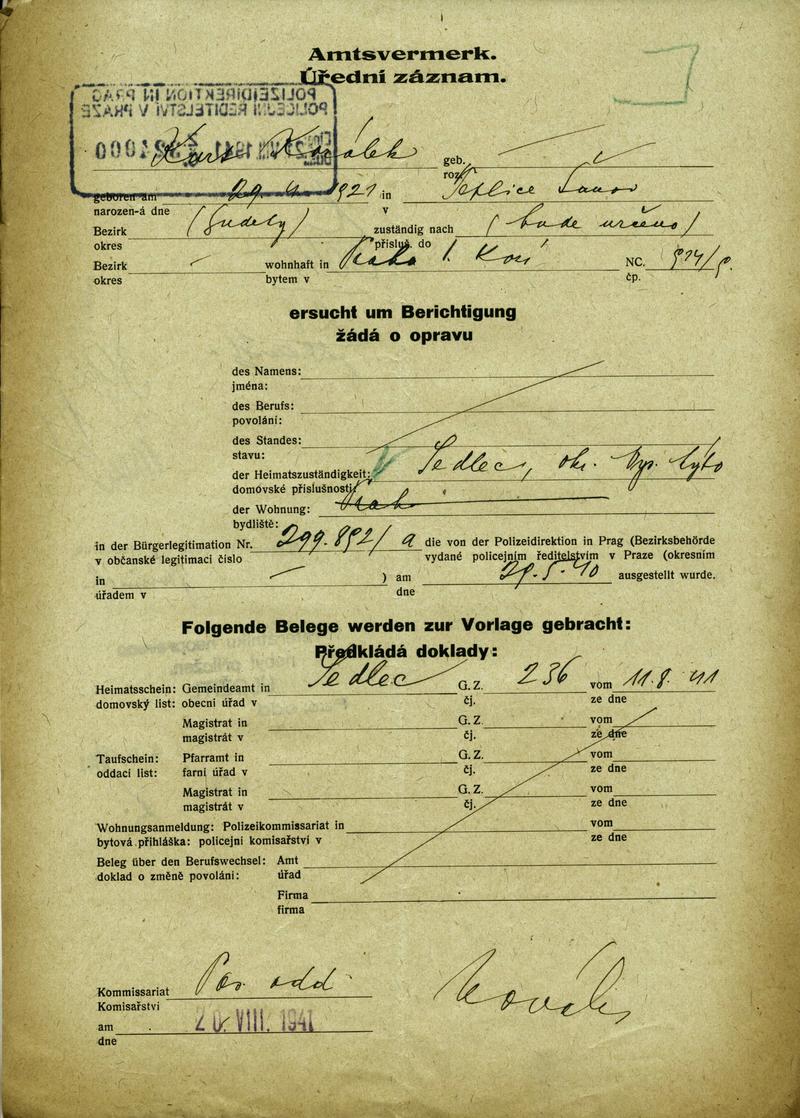 Amtsvermerk.
Úřední záznam.
POLIZEIDIREKTION IN PRAG
POLICEJNÍ ŘEDITELSTVÍ V PRAZE
geb.
roz.
geboren am 1921 in Teplice Šanov
narozen-á dne v
Bezirk zuständig nach (bude určeno)
okres přísluš. do
Bezirk wohnhaft in NC.
okres bytem v čp.
ersucht um Berichtigung
žádá o opravu
des Namens:
jména:
des Berufs:
povolání:
des Standes:
stavu:
der Heimatszuständigkeit: Sedlec, okr.
domovské příslušnosti:
der Wohnung:
bydliště:
in der Bürgerlegitimation Nr. 299.892/ a die von der Polizeidirektion in Prag (Bezirksbehörde
v občanské legitimaci číslo vydané policejním ředitelstvím v Praze (okresním
in ) am 29.5.40 ausgestellt wurde.
úřadem v dne
Folgende Belege werden zur Vorlage gebracht:
Předkládá doklady:
Heimatsschein: Gemeindeamt in Sedlec G.Z. 236 vom 11.8.41
domovský list: obecní úřad v čj. ze dne
Magistrat in G.Z. vom
magistrát v čj. ze dne
Taufschein: Pfarramt in G.Z. vom
oddací list: farní úřad v čj. ze dne
Magistrat in G.Z. vom
magistrát v čj. ze dne
Wohnungsanmeldung: Polizeikommissariat in vom
bytová přihláška: policejní komisařství v ze dne
Beleg über den Berufswechsel: Amt
doklad o změně povolání: úřad
Firma
firma
Kommissariat
Komisařství
am VIII. 1941
dne